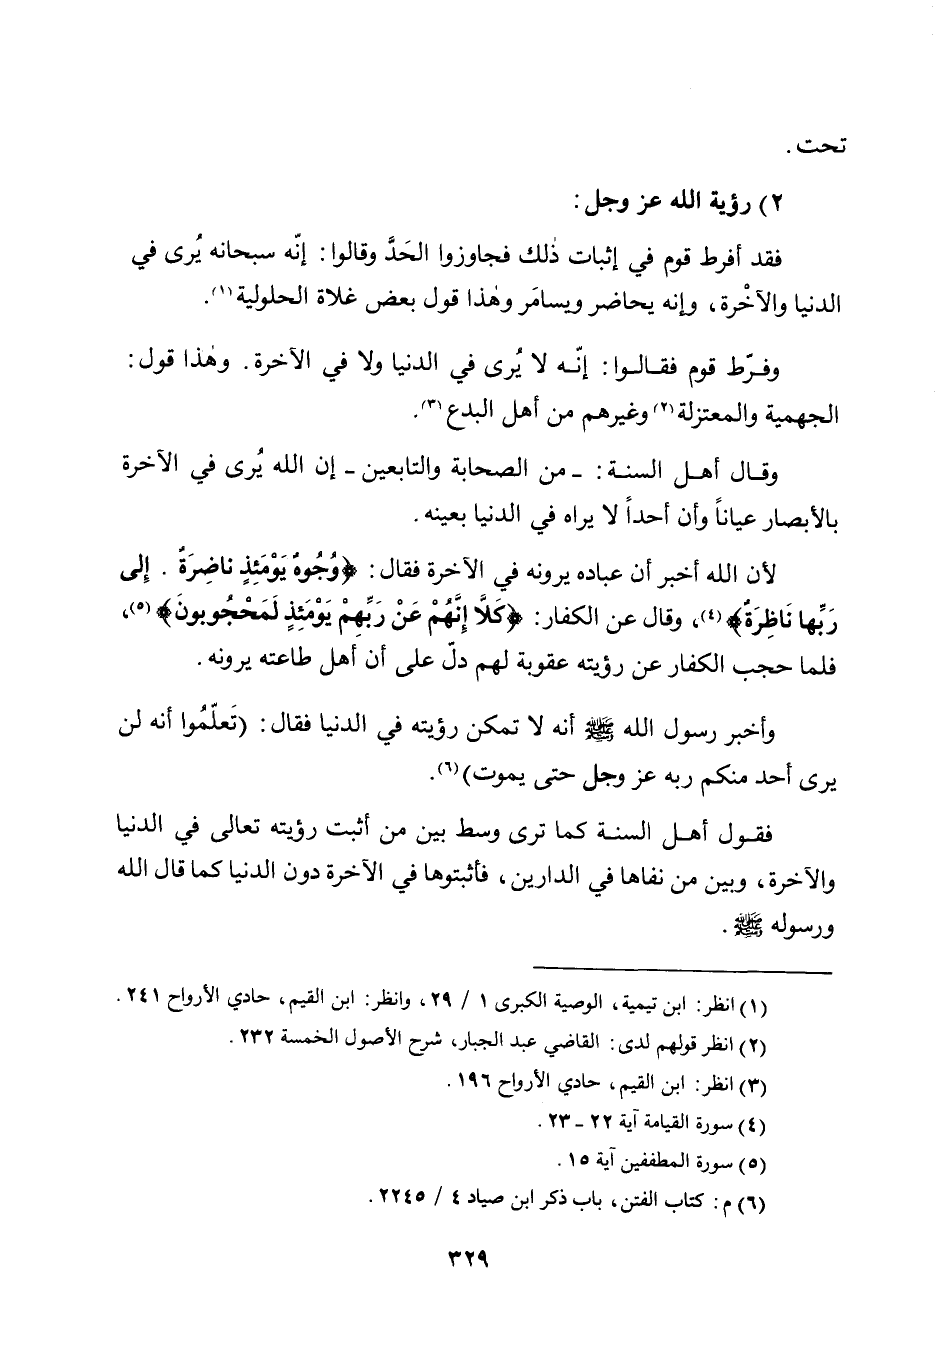 تحت .
٢) رؤية الله عز وجل :
فقد أفرط قوم في إثبات ذٰلك فجاوزوا الحَدَّ وقالوا : إنّه سبحانه يُرى في
الدنيا والآخْرة ، وإنه يحاضر ويسامَر وهٰذا قول بعض غلاة الحلولية(١).
وفـرّط قوم فقـالـوا : إنّـه لا يُرى في الدنيا ولا في الآخرة . وهٰذا قول :
الجهمية والمعتزلة(٢) وغيرهم من أهل البدع(٣).
وقـال أهـل السنـة : ـ من الصحابة والتابعين ـ إن الله يُرى في الآخرة
بالأبصار عياناً وأن أحداً لا يراه في الدنيا بعينه .
لأن الله أخبر أن عباده يرونه في الآخرة فقال : ﴿وُجُوهٌ يَوْمَئِذٍ ناضِرَةٌ . إِلى
رَبِّها نَاظِرَةٌ﴾(٤)، وقال عن الكفار : ﴿كَلَّا إِنَّهُمْ عَنْ رَبِّهِمْ يَوْمَئِذٍ لَمَحْجُوبونَ﴾(٥)،
فلما حجب الكفار عن رؤيته عقوبة لهم دلّ على أن أهل طاعته يرونه .
وأخبر رسول الله ﷺ أنه لا تمكن رؤيته في الدنيا فقال : (تَعلّمُوا أنه لن
يرى أحد منكم ربه عز وجل حتى يموت)(٦).
فقـول أهـل السنـة كما ترى وسط بين من أثبت رؤيته تعالى في الدنيا
والآخرة ، وبين من نفاها في الدارين ، فأثبتوها في الآخرة دون الدنيا كما قال الله
ورسوله ﷺ .
(١) انظر : ابن تيمية ، الوصية الكبرى ١ / ٢٩ ، وانظر : ابن القيم ، حادي الأرواح ٢٤١ .
(٢) انظر قولهم لدى : القاضي عبد الجبار ، شرح الأصول الخمسة ٢٣٢ .
(٣) انظر : ابن القيم ، حادي الأرواح ١٩٦ .
(٤) سورة القيامة آية ٢٢ ـ ٢٣ .
(٥) سورة المطففين آية ١٥ .
(٦) م : كتاب الفتن ، باب ذكر ابن صياد ٤ / ٢٢٤٥ .
٣٢٩